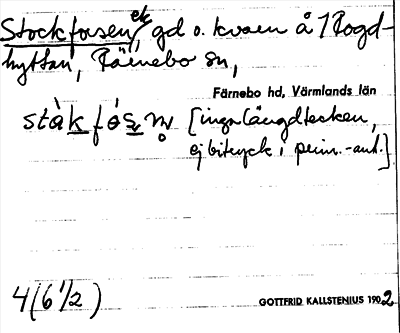 Stockforsen, ek, gd o. kvarn å 1 Rogd-
hyttan, Rämebo sn,
Färnebo hd, Värmlands län
stàk fósn [inga längdtecken,
ej bitryck i prim.-ant.]
4(6 1/2)
GOTTFRID KALLSTENIUS 1902